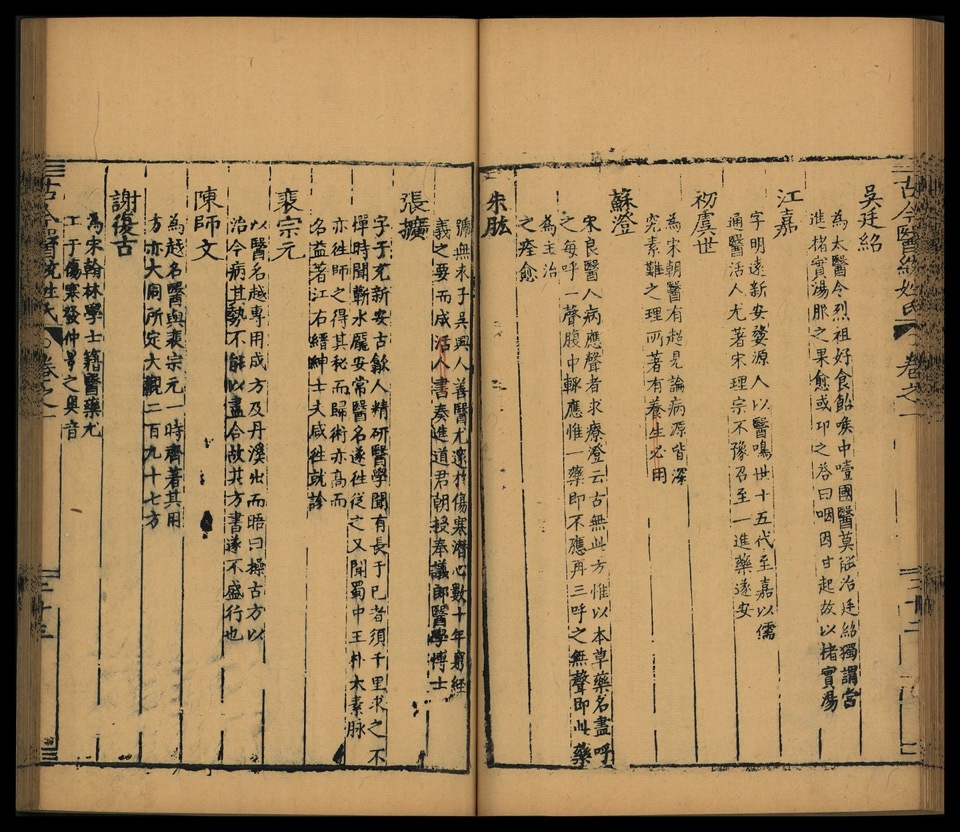 吳廷紹
為太醫令烈祖好食飴喉中噎國醫莫能治廷紹獨謂當
進楮實湯服之果愈或叩之答曰咽因甘起故以楮實湯
江嘉
字明遠新安婺源人以醫鳴世十五代至嘉以儒
通醫活人尤著宋理宗不豫召至一進藥遂安
初虞世
為宋朝醫有超見論病源皆深
究素難之理所著有養生必用
蘇澄
宋良醫人病應聲者求療澄云古無此方惟以本草藥名盡呼
之每呼一聲腹中輒應惟一藥即不應再三呼之無聲即此藥
為主治
之痊愈
朱肱
號無求子吳興人善醫尤邃於傷寒潛心數十年窮經
義之要而成活人書奏進道君朝授奉議郎醫學博士
張擴
字子充新安古歙人精研醫學聞有長于已者須千里求之不
憚時聞蘄水龐安常醫名遂徃從之又聞蜀中王朴太素脉
亦徃師之得其秘而歸術亦高而
名益著江右縉紳士夫咸徃就診
裴宗元
以醫名越專用成方及丹溪出而晤曰操古方以
治今病其勢不能以盡合故其方書遂不盛行也
陳師文
為越名醫與裴宗元一時齊著其用
方亦大同所定大觀二百九十七方
謝復古
為宋翰林學士籍醫藥尤
工于傷寒發仲景之奧音
古今醫統姓氏 卷之一
三十二
古今醫統姓氏 卷之一
三十三